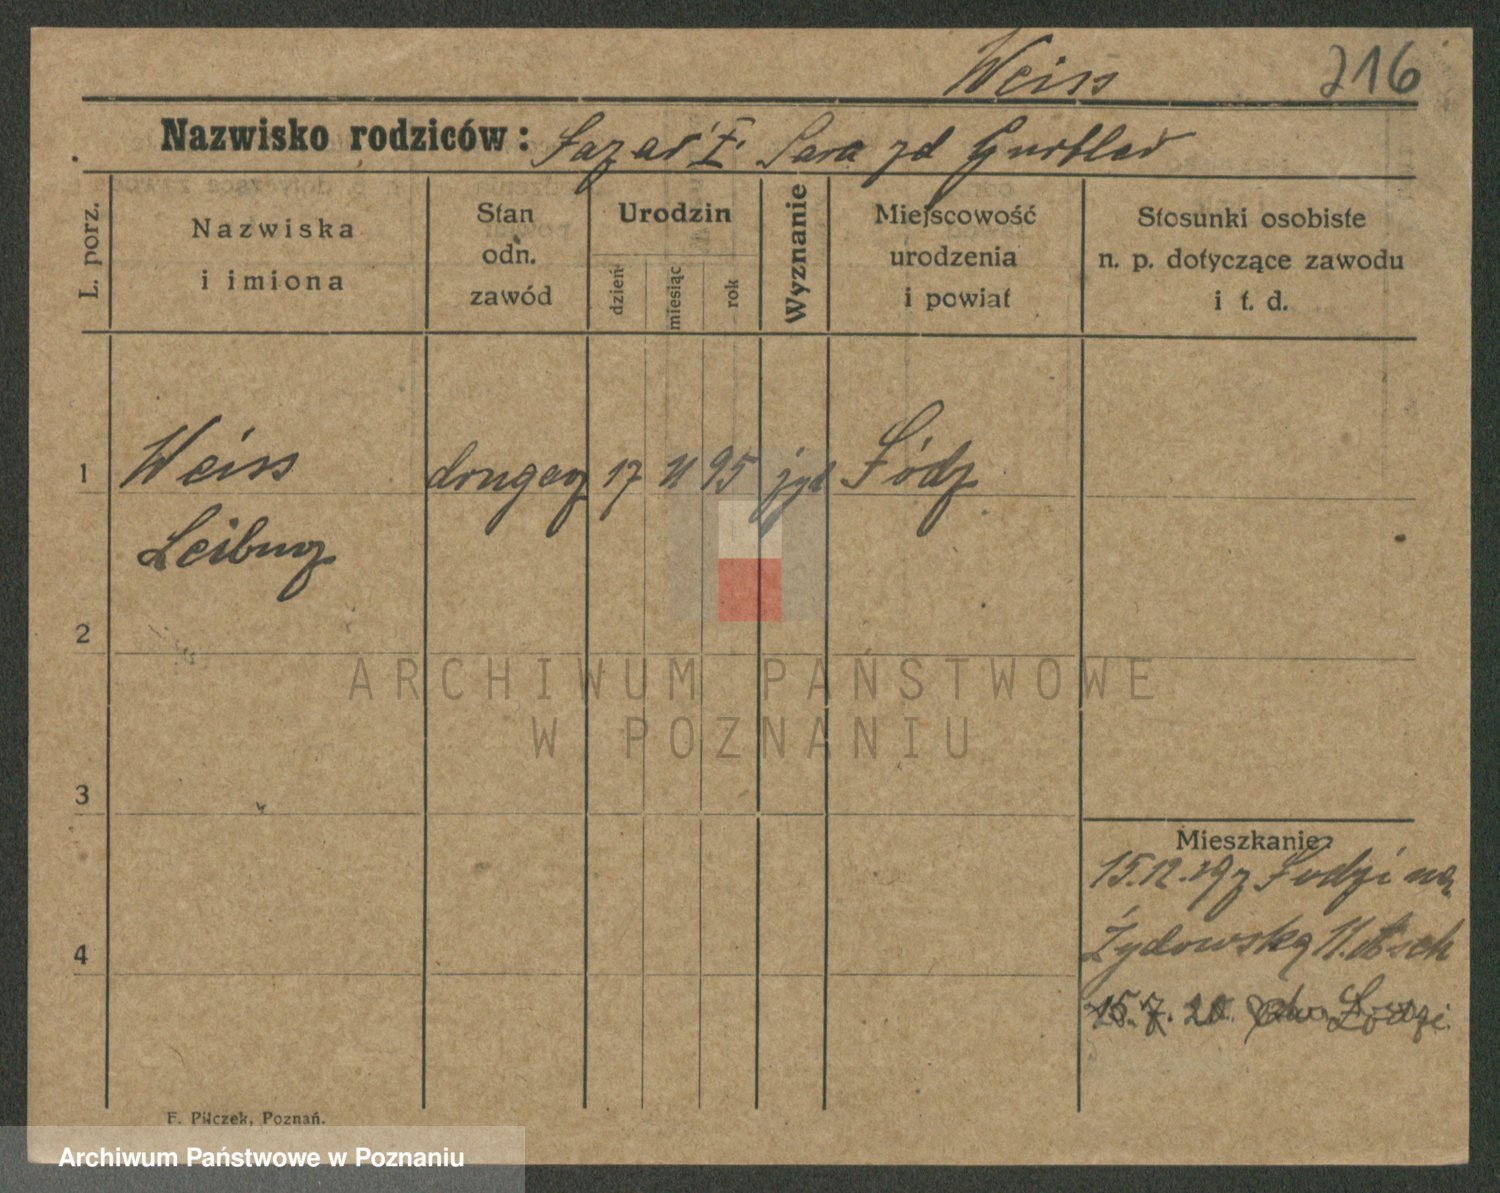 Weiss 216
Nazwisko rodziców: Łazar Ż. Sara zd
L. porz.
Nazwiska i imiona
Stan odn. zawód
Urodzin
dzień
miesiąc
rok
Wyznanie
Miejscowość urodzenia i powiat
Stosunki osobiste n. p. dotyczące zawodu i t. d.
1 Weiss drugarz 17 11 95 żyd Łódz
Leibusz
2
ARCHIWUM PAŃSTWOWE
W POZNANIU
3
Mieszkanie:
15.12.19 z Łodzi na
4 Żydowską 11.
15.7.20. do Łodzi
F. Pilczek, Poznań.
Archiwum Państwowe w Poznaniu